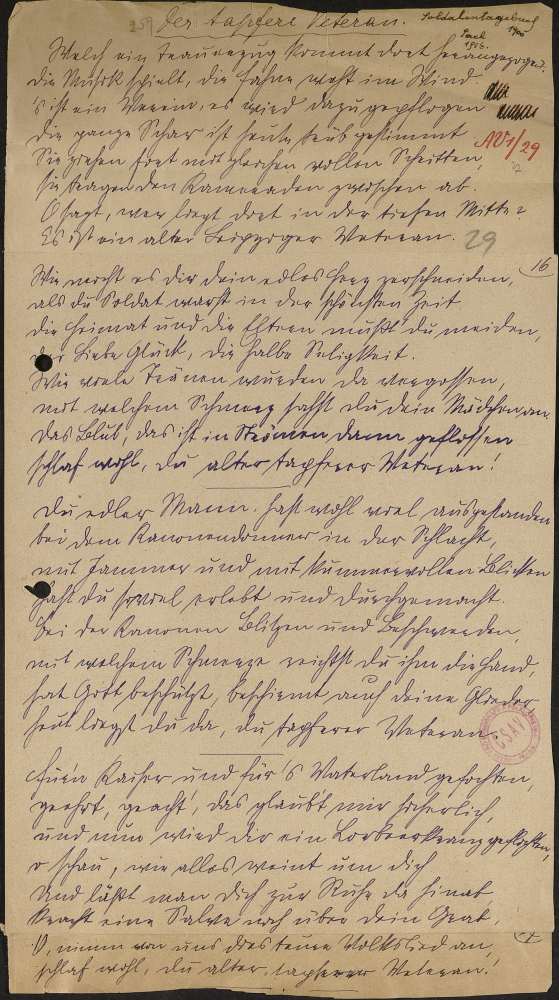 259 Der tapfere Veteran. Soldatentagebuch
1906.
Welch ein Trauerzug kommt dort herangezogen,
die Musik spielt, die Fahne weht im Wind.
's ist ein Verein, es wird dazu gepflogen
die ganze Schar ist heute trüb gestimmt
AVI/29
Sie ziehen fort mit gleichen vollen Schritten,
sie tragen den Kameraden zwischen ab.
O sagt, wer liegt dort in der tiefen Mitte?
Es ist ein alter Leipziger Veteran. 29
16.
Wie mocht es dir dein edles Herz zerschneiden,
als du Soldat warst in der schönsten Zeit
die Heimat und die Eltern mußt' du meiden,
der Liebe Glück, die halbe Seligkeit.
Wie viele Tränen wurden da vergossen,
mit welchem Schmerz sahst du dein Mädchen an.
Das Blut, das ist in Strömen dann geflossen
schlaf wohl, du alter tapferer Veteran!
Du edler Mann, hast wohl viel ausgestanden
bei dem Kanonendonner in der Schlacht,
mit Jammer und mit kummervollen Blicken
hast du soviel erlebt und durchgemacht.
Bei der Kanonen Blitzen und Beschwerden,
mit welchem Schmerze reichst du ihm die Hand,
hat Gott beschützt, beschirmt auch deine Glieder,
heut liegst du da, du tapferer Veteran.
ČSAV
Für'n Kaiser und für's Vaterland gefochten,
geehrt, geacht', das glaubt mir sicherlich,
und nun wird dir ein Lorbeerkranz geflochten,
o schau, wie alles weint um dich
Und läßt man dich zur Ruhe da hinab
kracht eine Salve noch über dein Grab,
O, nimm von uns dies teure Volkslied an,
schlaf wohl, du alter, tapferer Veteran!